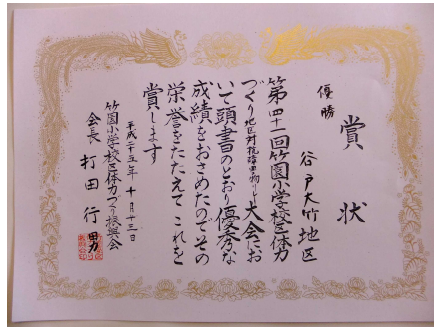 賞状
優勝
谷戸大竹地区
第四十一回竹園小学校区体力
づくり地区対抗障害物リレー大会にお
いて頭書のとおり優秀な
成績をおさめたのでその
栄誉をたたえてこれを
賞します
平成二十五年十月十三日
竹園小学校区体力づくり振興会
会長 打田行